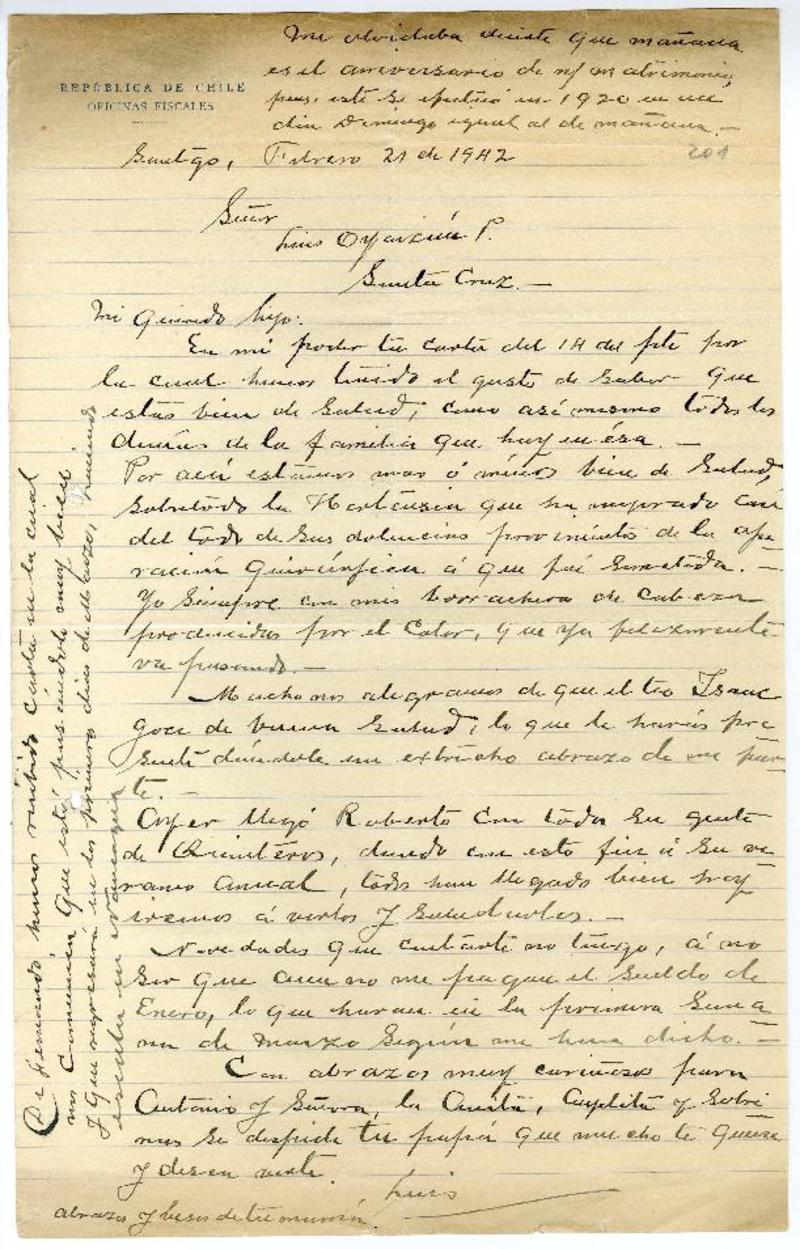 Me olvidaba decirte que mañana
es el aniversario de n/ matrimonio,
pues este se efectuó en 1920 en un
día Domingo igual al de mañana.—
REPÚBLICA DE CHILE
OFICINAS FISCALES
201
Santgo, Febrero 21 de 1942
Señor
Luis Oyarzún P.
Santa Cruz.—
Mi Querido hijo:
En mi poder tu carta del 14 del pte por
la cual hemos tenido el gusto de saber que
estás bien de salud, como así mismo todos los
demás de la familia que hay en ésa.—
Por acá estamos mas ó menos bien de salud,
sobretodo la Hortensia que ha mejorado casi
del todo de sus dolencias provenientes de la ope
ración quirúrjica á que fué sometida.—
Yo siempre con mis borrachera de cabeza
producidas por el calor, que ya felizmente
va pasando.—
Mucho nos alegramos de que el tío Isaac
goce de buena salud, lo que le harás pre
sente dándole un extricho abrazo de mi par
te.—
Ayer llegó Roberto con toda su gente
de Quinteros, dando con esto fin á su ve
raneo anual, todos han llegado bien hoy
iremos á verlos y saludarlos.—
Novedades que contarte no tengo, á no
ser que aun no me pagan el sueldo de
Enero, lo que haran en la primera sema
na de Marzo según me han dicho.—
Con abrazos muy cariñosos para
Antonio y Señora, la Anita, y Sobri
nos se despide tu papá que mucho te quiere
y desea verte.
Luis
abrazos y besos de tu mamá.
De Hernando hemos recibido carta en la cual
nos comunica que está pasándolo muy bien
y que regresará en los primeros días de Marzo,